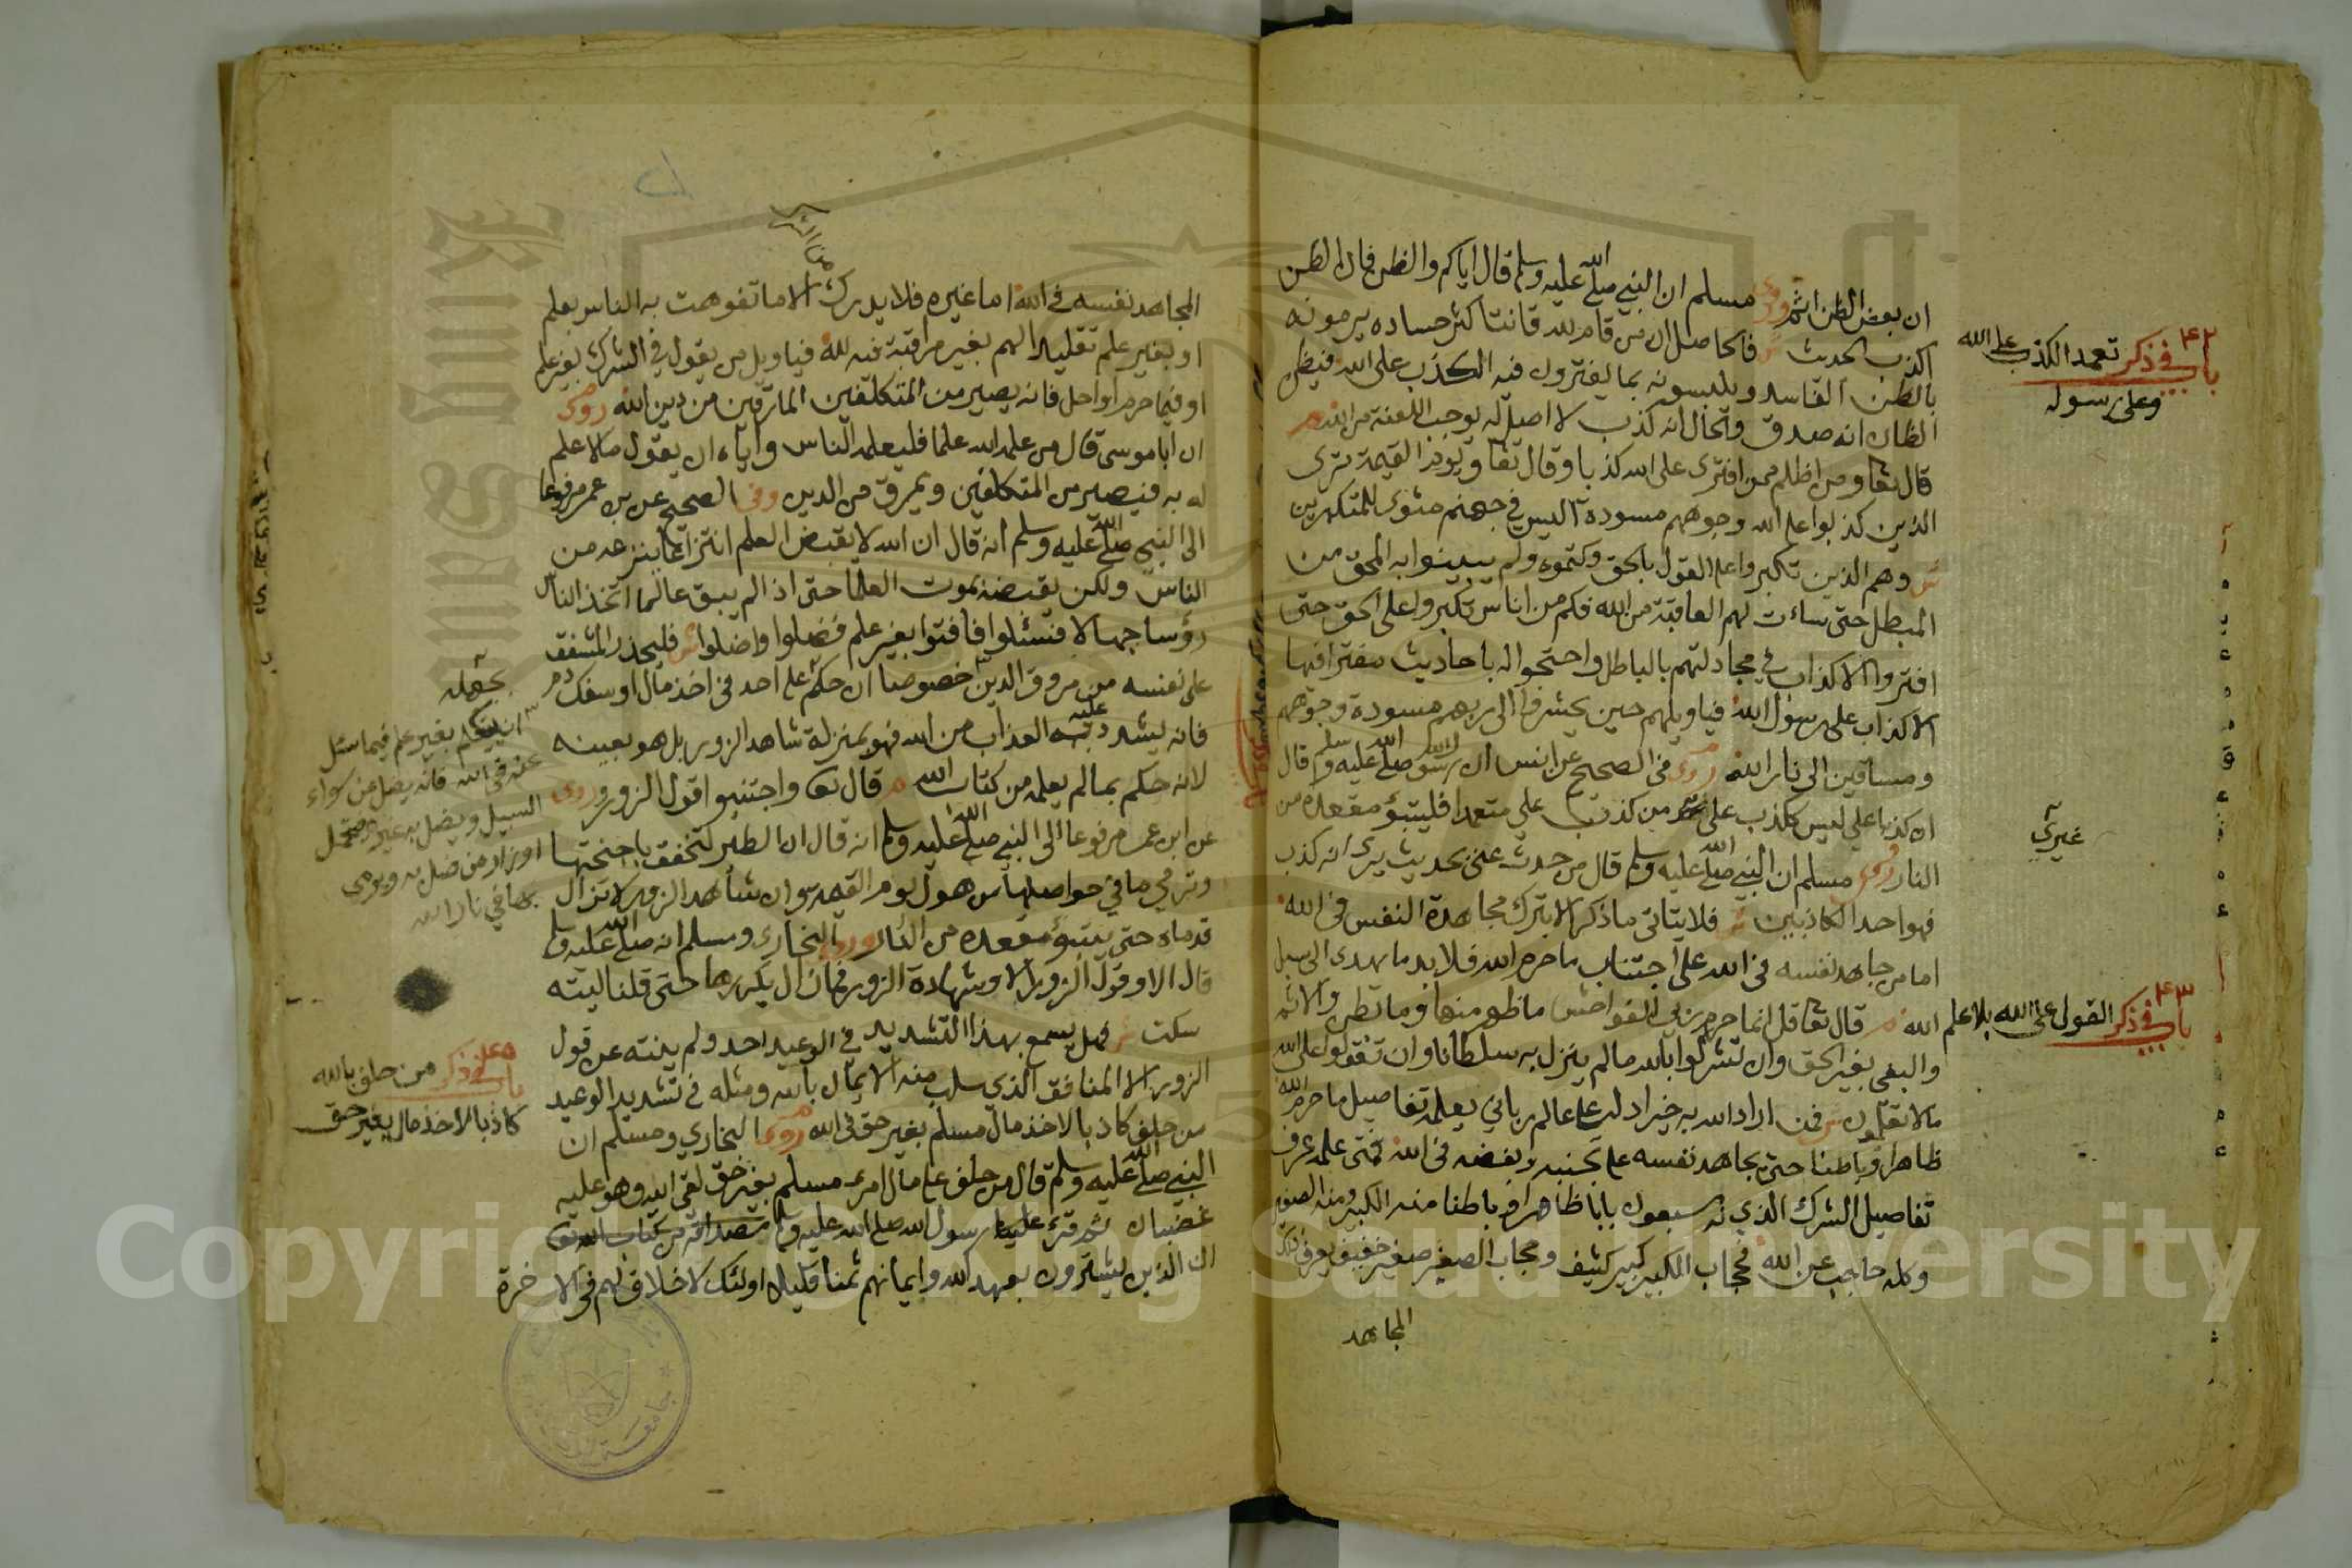 ان بعض الظن اثم وروى مسلم ان النبي صلى الله عليه وسلم قال اياكم والظن فان الظن
اكذب الحديث ش فالحاصل ان من قام لله قانتا كثر حساده يرمونه
بالظن الفاسد ويلبسونه بما يفترون فيه الكذب على الله فيظن
الظان انه صدق والحال انه كذب لا اصل له يوجب اللعنة من الله
قال تعا ومن اظلم ممن افترى على الله كذبا وقال تعا ويوم القيمة ترى
الذين كذبوا على الله وجوههم مسودة اليس في جهنم مثوى للمتكبرين
ش وهم الذين تكبروا على القول بالحق وكتموه ولم يبينوا به المحق من
المبطل حتى ساءت لهم العاقبة من الله فكم من اناس تكبروا على الحق حتى
افتروا الاكذاب في مجادلتهم بالباطل واحتجوا له باحاديث مفترا فيها
الاكذاب على رسول الله فيا ويلهم حين يحشرون الى ربهم مسودة وجوههم
ومساقين الى نار الله روى في الصحيح عن انس ان رسول الله صلى الله عليه وسلم قال
ان كذبا علي ليس ككذب على من كذب علي متعمدا فليتبؤ مقعده من
النار وروى مسلم ان النبي صلى الله عليه وسلم قال من حدث عني بحديث يرى انه كذب
فهو احد الكاذبين ش فلا يتاتى ما ذكر الا بترك مجاهدة النفس في الله
اما من جاهد نفسه في الله على اجتناب ما حرم الله فلا بد ما يهدى الى سبل
الله قال تعا قل انما حرم ربي الفواحش ما ظهر منها وما بطن والاثم
والبغي بغير الحق وان تشركوا بالله ما لم ينزل به سلطانا وان تقولوا على الله
ما لا تعلمون ش فمن اراد الله به خيرا دله على عالم رباني يعلمه تفاصيل ما حرم الله
ظاهرا وباطنا حتى يجاهد نفسه على تجنبه وبغضه في الله فمتى علمه عرف
تفاصيل الشرك الذي نه سبعون بابا ظاهرا وباطنا منه الكبير ومنه الصغير
وكله حاجب عن الله فحجاب الكبير كبير كثيف وحجاب الصغير صغير خفيف يعرف
المجاهد
باب ٤٢ في ذكر تعمد الكذب على الله
وعلى رسوله
غيري
باب ٤٣ في ذكر القول على الله بلا علم
المجاهد نفسه في الله اما غيره فلا يدرك الا ما تفوهت به الناس بعلم
او بغير علم تقليدا لهم بغير مراقبة فيه لله فيا ويل من يقول في الشرك بغير علم
او فيما حرم او احل فانه يصير من المتكلفين المارقين من دين الله روى
ان ابا موسى قال من علمه الله علما فليعلمه الناس واياه ان يقول ما لا علم
له به فيصير من المتكلفين ويمرق من الدين وفي الصحيح عن بن عمر مرفوعا
الى النبي صلى الله عليه وسلم انه قال ان الله لا يقبض العلم انتزاعا ينتزعه من
الناس ولكن يقبضه بموت العلما حتى اذا لم يبق عالما اتخذ الناس
رؤسا جهالا فسئلوا فافتوا بغير علم فضلوا واضلوا ش فليحذر المشفق
على نفسه من مروق الدين خصوصا ان حكم على احد في اخذ مال او سفك دم
فانه يشدد عليه العذاب من الله فهو بمنزلة شاهد الزور بل هو بعينه
لانه حكم بما لم يعلمه من كتاب الله قال تعا واجتنبوا قول الزور وروى
عن ابن عمر مرفوعا الى النبي صلى الله عليه وسلم انه قال ان الطير لتخفق باجنحتها
وترمي ما في حواصلها من هول يوم القيمة وان شاهد الزور لا تزال
قدماه حتى يتبؤ مقعده من النار وروى البخاري ومسلم انه صلى الله عليه وسلم
قال الا وقول الزور الا وشهادة الزور فما زال يكررها حتى قلنا ليته
سكت ش فهل يسمع بهذا التشديد في الوعيد احد ولم ينته عن قول
الزور الا المنافق الذي سلب منه الايمان بالله ومثله في تشديد الوعيد
من حلف كاذبا لاخذ مال مسلم بغير حق في الله روى البخاري ومسلم ان
النبي صلى الله عليه وسلم قال من حلف على مال امرئ مسلم بغير حق لقي الله وهو عليه
غضبان ثم قرء علينا رسول الله صلى الله عليه وسلم مصداقه من كتاب الله تعا
ان الذين يشترون بعهد الله وايمانهم ثمنا قليلا اولئك لا خلاق لهم في الاخرة
من الشرك
بجهله
ان يتكلم بغير علم فيما سئل
عنه في الله فانه يضل عن سواء
السبيل ويضل به غيره فيحتمل
اوزار من ضل به ويرمى
بها في نار الله
باب ٤٤ في ذكر من حلف بالله
كاذبا لاخذ مال بغير حق
Copyright © King Saud University